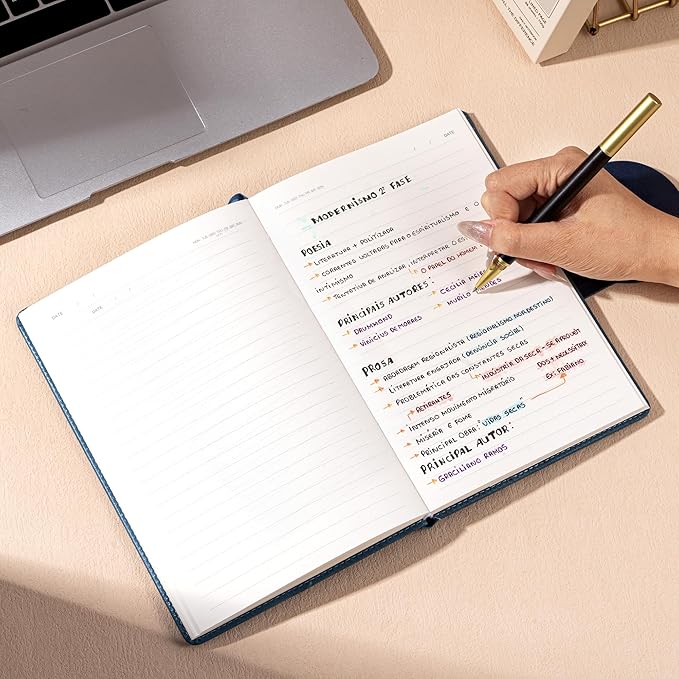 DATE
DATE
DATE
MODERNISMO 2ª FASE
POESIA
→ LITERATURA + POLITIZADA
→ CORRENTES VOLTADAS PARA O ESPIRITUALISMO E O
INTIMISMO
→ TENTATIVA DE ANALISAR, INTERPRETAR O ES
→ O PAPEL DO HOMEM
PRINCIPAIS AUTORES:
→ DRUMMOND → CECILIA MEI
→ VINICIUS DE MORAES → MURILO
PROSA
→ ABORDAGEM REGIONALISTA (REGIONALISMO NORDESTINO)
→ LITERATURA ENGAJADA (DENÚNCIA SOCIAL)
→ PROBLEMÁTICA DAS CONSTANTES SECAS
→ RETIRANTES → INDÚSTRIA DA SECA - SE APROVEIT
→ INTENSO MOVIMENTO MIGRATÓRIO DOS + NECESSITAD
→ MISÉRIA E FOME EX: FABIANO
→ PRINCIPAL OBRA: "VIDAS SECAS"
PRINCIPAL AUTOR:
→ GRACILIANO RAMOS